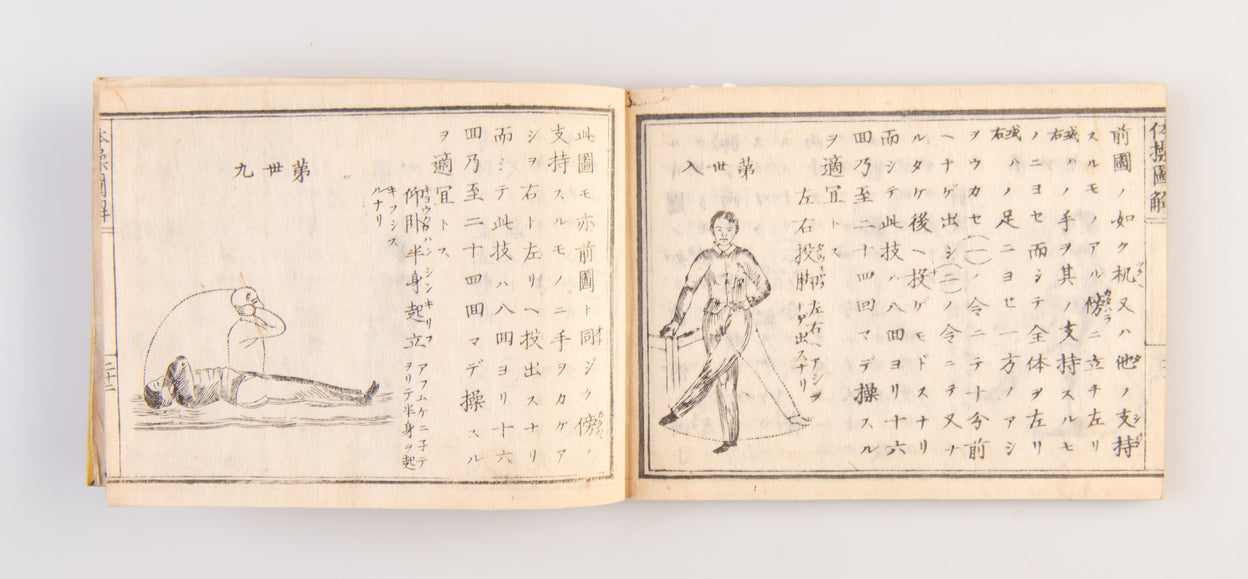 体操圖解
前圖ノ如ク机又ハ他ノ支持
スルモノアル傍ニ立チ左リ
或ハ右ノ手ヲ其ノ支持スルモ
ノニヨセ而シテ全体ヲ左リ
或ハ右ノ足ニヨセ一方ノアシ
ヲウカセ(一)ノ令ニテ十分前
ヘナゲ出シ(二)ノ令ニテ又ナ
ルタケ後ヘ投ゲモドスナリ
而シテ此技ハ八回ヨリ十六
回乃至二十四回マデ操スル
ヲ適宜トス
左右投脚 左右ヘアシヲ
ナゲ出スナリ
第卅八
此圖モ亦前圖ト同ジク傍ノ
支持スルモノニ手ヲカケア
シヲ右ト左リヘ投出スナリ
而シテ此技ハ八回ヨリ十六
回乃至二十四回マデ操スル
ヲ適宜トス
仰卧半身起立 アフムケニ子テ
ヨリテ半身ヲ起
キフシス
ルナリ
第卅九
体操圖解
二十二